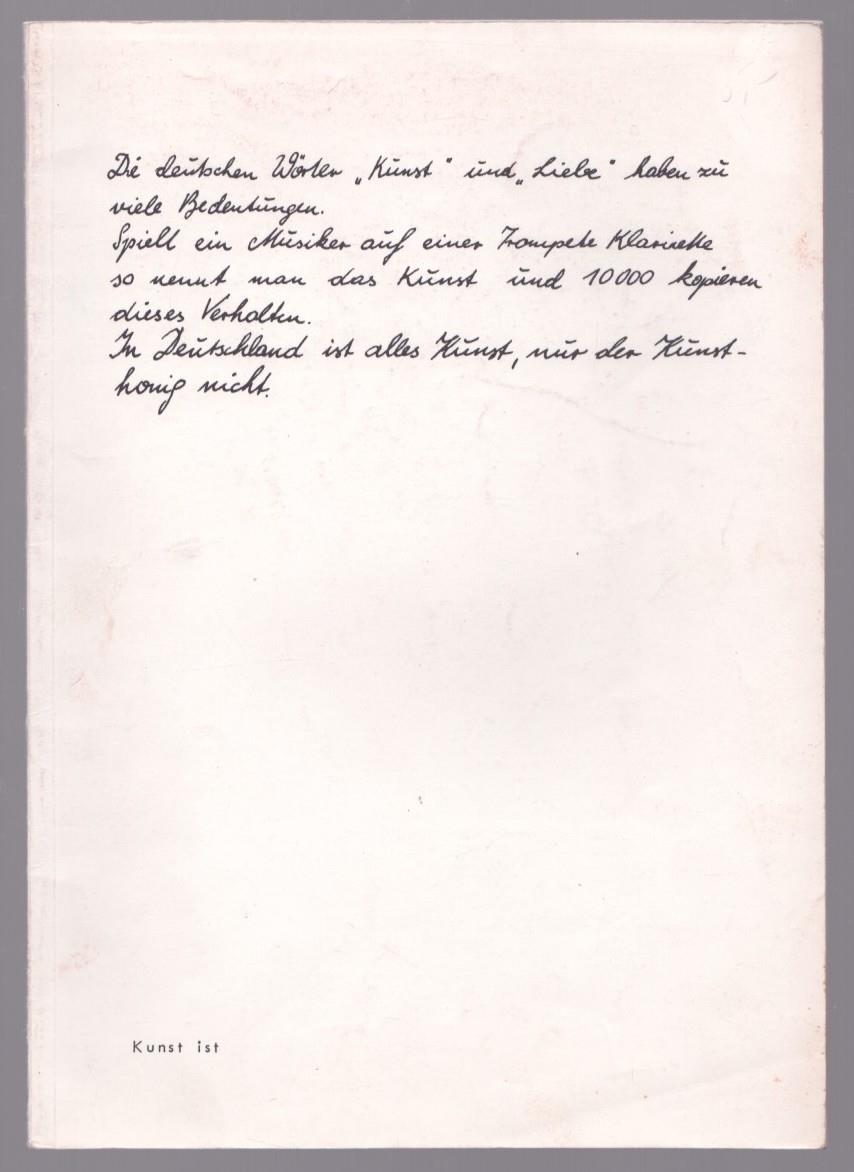 Die deutschen Wörter „Kunst" und „Liebe" haben zu
viele Bedeutungen.
Spielt ein Musiker auf einer Trompete Klarinette
so nennt man das Kunst und 10000 kopieren
dieses Verhalten.
In Deutschland ist alles Kunst, nur der Kunst-
honig nicht.
Kunst ist